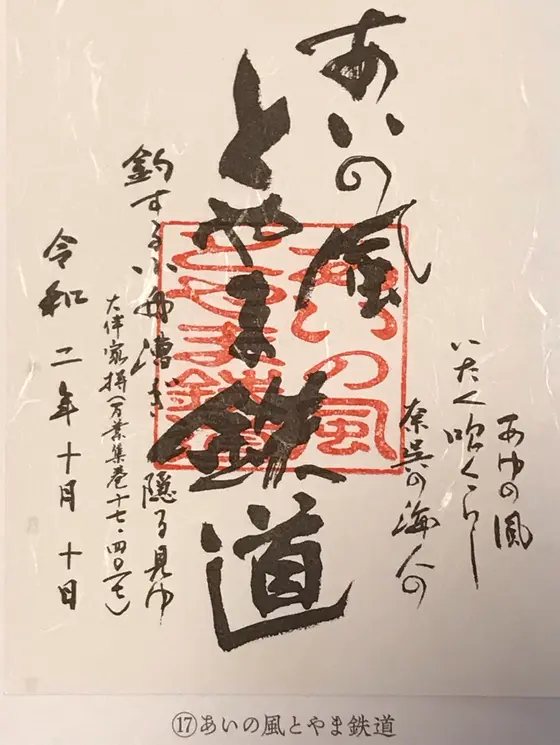 あゆの風
いたく吹くらし
奈呉の海人の
あいの風
とやま鉄道
あいの風
とやま鉄道
釣する小舟漕ぎ隠る見ゆ
大伴家持(万葉集巻十七・四〇一七)
令和二年十月十日
⑰あいの風とやま鉄道